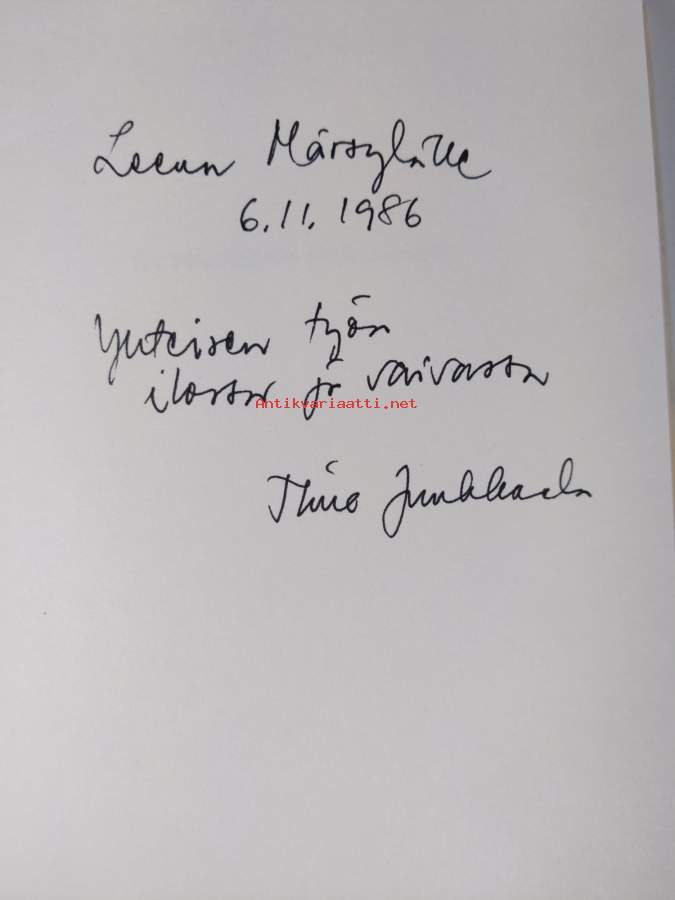 Leena Märsylälle
6.11.1986
Yhteisen työn
ilosta ja vaivasta
Antikvariaatti.net
Timo Junkkaala